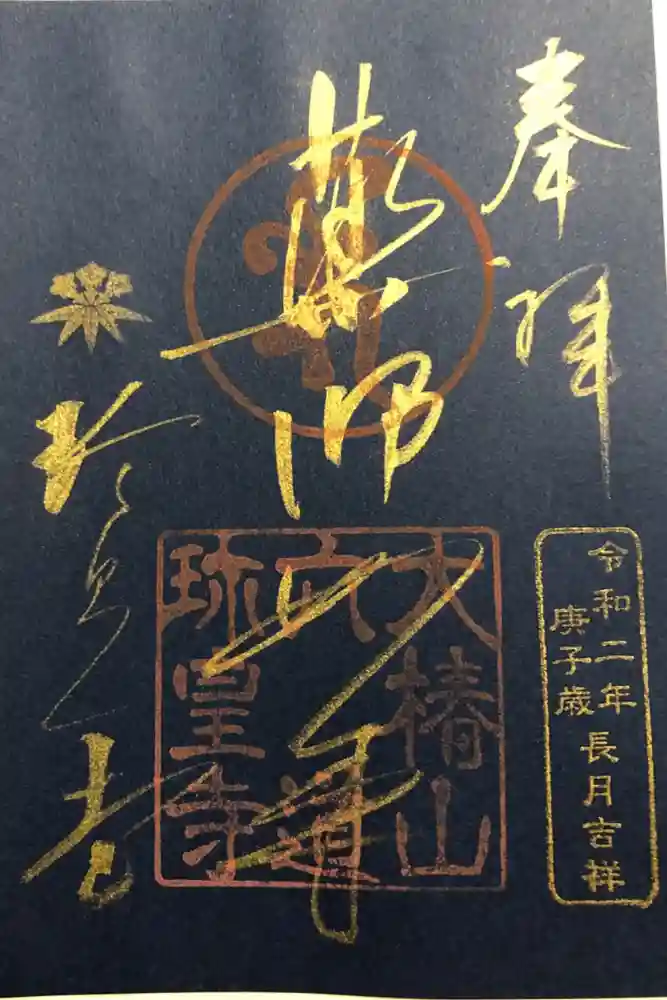 奉拝
令和二年
庚子歳
長月吉祥
薬師
大椿山
六道
珎皇寺
珍皇寺